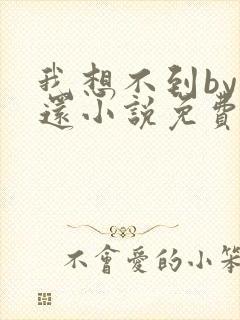 我想不到by
還小說免費
不會愛的小笨